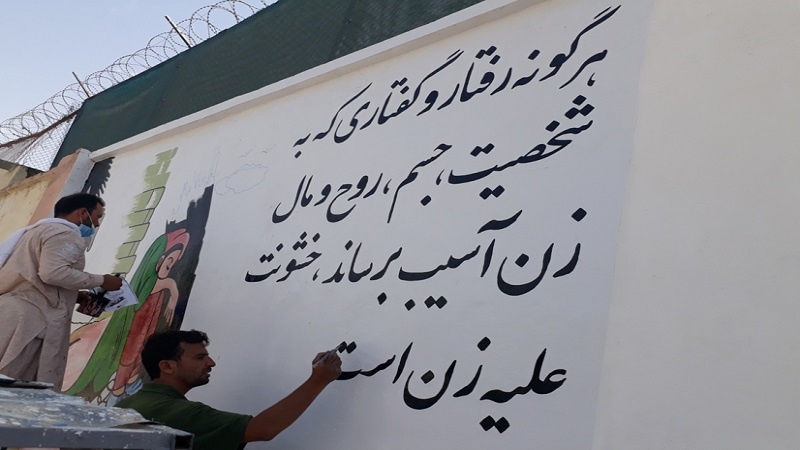 هرگونه رفتار و گفتاری که به
شخصیت، جسم، روح و مال
زن آسیب برساند، خشونت
علیه زن است